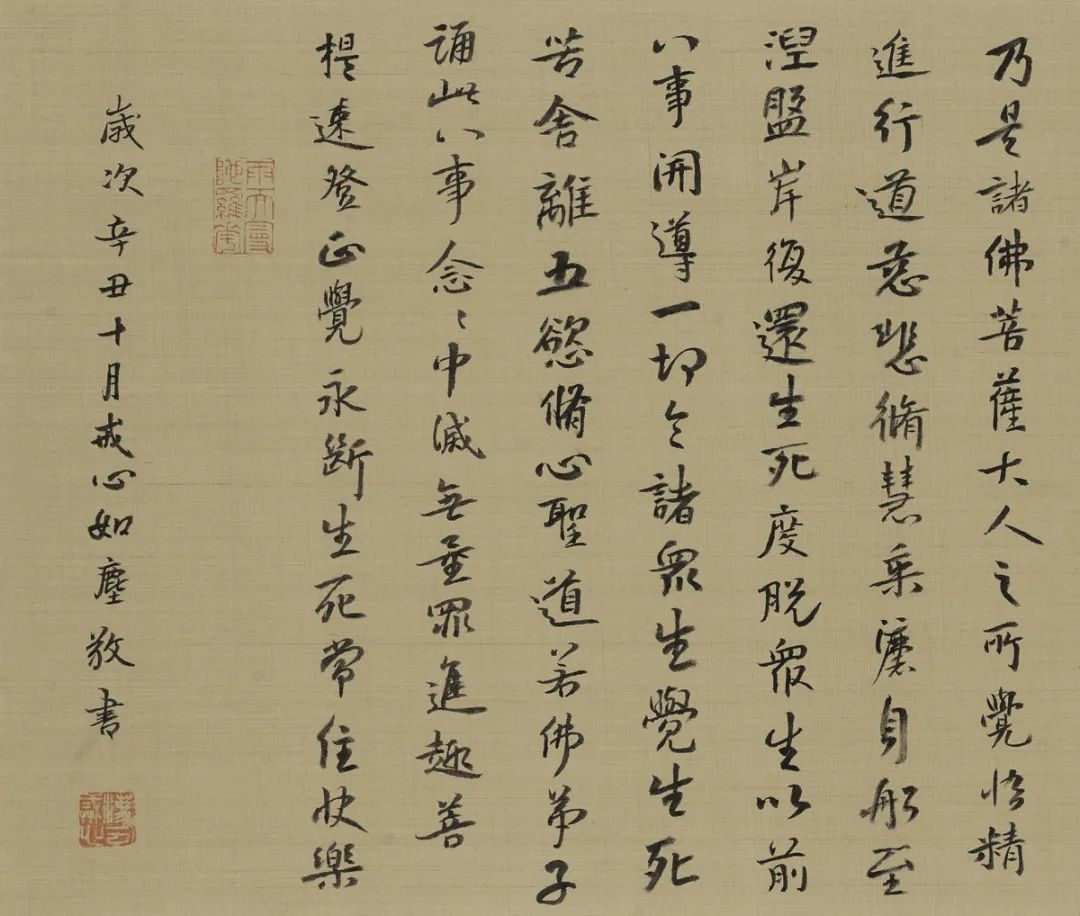 乃是諸佛菩薩大人之所覺悟精
進行道慈悲脩慧乘灋身船至
涅盤岸復還生死度脫衆生以前
八事開導一切令諸衆生覺生死
苦舍離五慾脩心聖道若佛弟子
誦此八事念〻中滅無量罪進趣菩
提速登正覺永斷生死常住快樂
雨天曼陀羅華
歲次辛丑十月戒心如塵敬書